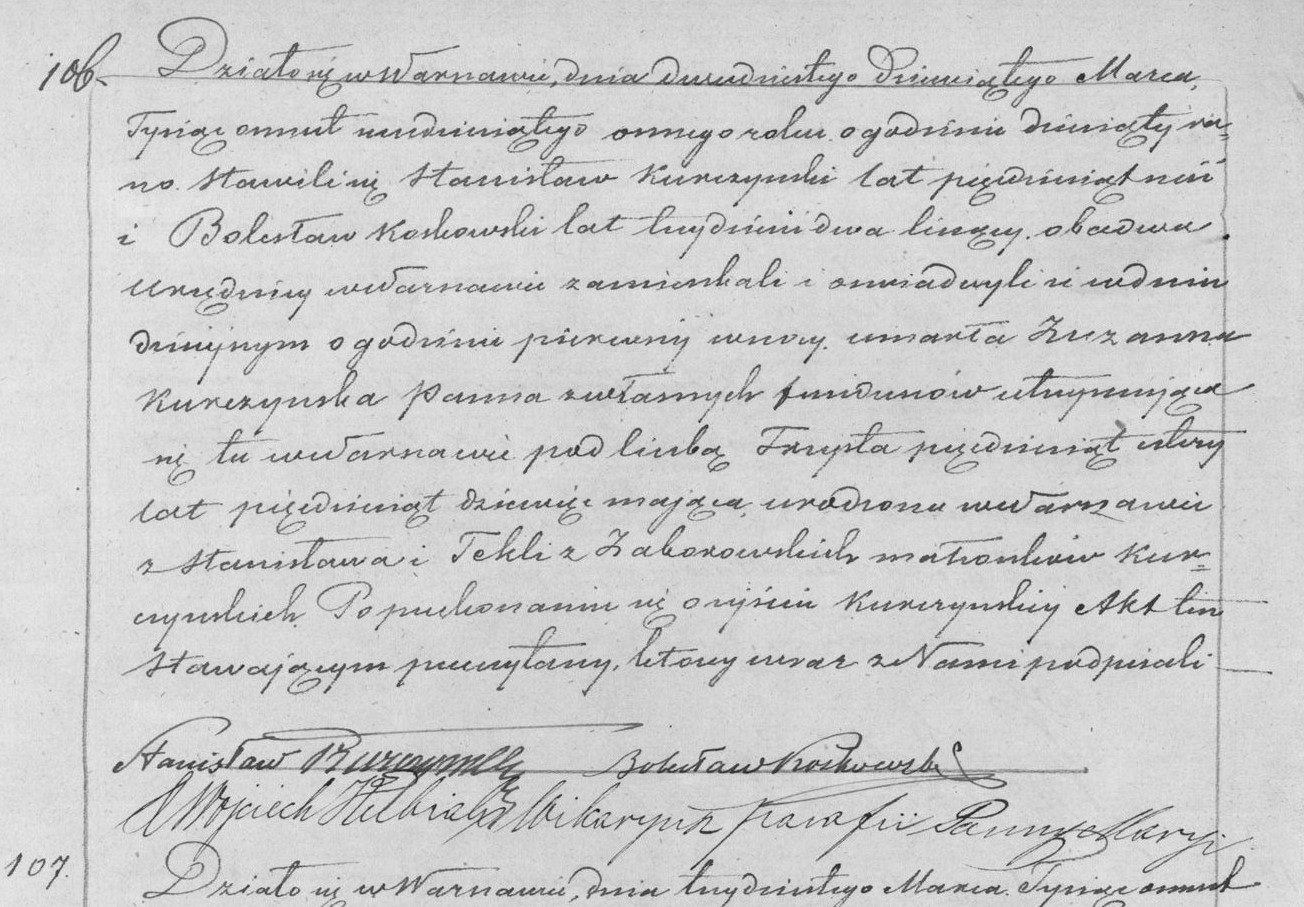 106. Działo się w Warszawie, dnia dwudziestego dziewiątego Marca,
Tysiąc ośmset sześdziesiątego ósmego roku o godzinie dziesiąty ra=
no. Stawili się Stanisław Kurczynski lat pięćdziesiąt sześć
i Bolesław Koskowski lat trzydzieści dwa liczący, obadwa
Urzędnicy w Warszawie zamieszkali i oswiadczyli iż w dniu
dzisiejszym o godzinie pierwszej w nocy umarła Zuzanna
Kurczynska Panna z własnych funduszów utrzymująca
się tu w Warszawie pod liczbą Trzysta pięćdziesiąt cztery
lat pięćdziesiąt dziewięć mająca, urodzona w Warszawie
z Stanisława i Tekli z Zaborowskich małżonków Kur=
czynskich. Po przekonaniu się o zejściu Kurczynskiej Akt ten
Stawającym przeczytany, którzy wraz z Nami podpisali
Stanisław Kurczynski Bolesław Koskowski
X Wojciech Wikaryusz Parafii Panny Maryi
107. Działo się w Warszawie, dnia trzydziestego Marca Tysiąc ośmset